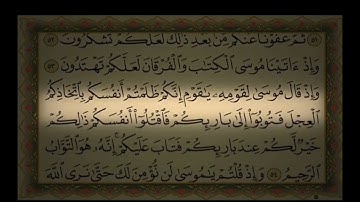 ثُمَّ عَفَوْنَا عَنكُم مِّنۢ بَعْدِ ذَٰلِكَ لَعَلَّكُمْ تَشْكُرُونَ ٥٢
وَإِذْ ءَاتَيْنَا مُوسَى ٱلْكِتَٰبَ وَٱلْفُرْقَانَ لَعَلَّكُمْ تَهْتَدُونَ ٥٣
وَإِذْ قَالَ مُوسَىٰ لِقَوْمِهِۦ يَٰقَوْمِ إِنَّكُمْ ظَلَمْتُمْ أَنفُسَكُم بِٱتِّخَاذِكُمُ
ٱلْعِجْلَ فَتُوبُوٓا۟ إِلَىٰ بَارِئِكُمْ فَٱقْتُلُوٓا۟ أَنفُسَكُمْ ذَٰلِكُمْ
خَيْرٌ لَّكُمْ عِندَ بَارِئِكُمْ فَتَابَ عَلَيْكُمْ إِنَّهُۥ هُوَ ٱلتَّوَّابُ
ٱلرَّحِيمُ ٥٤ وَإِذْ قُلْتُمْ يَٰمُوسَىٰ لَن نُّؤْمِنَ لَكَ حَتَّىٰ نَرَى ٱللَّهَ